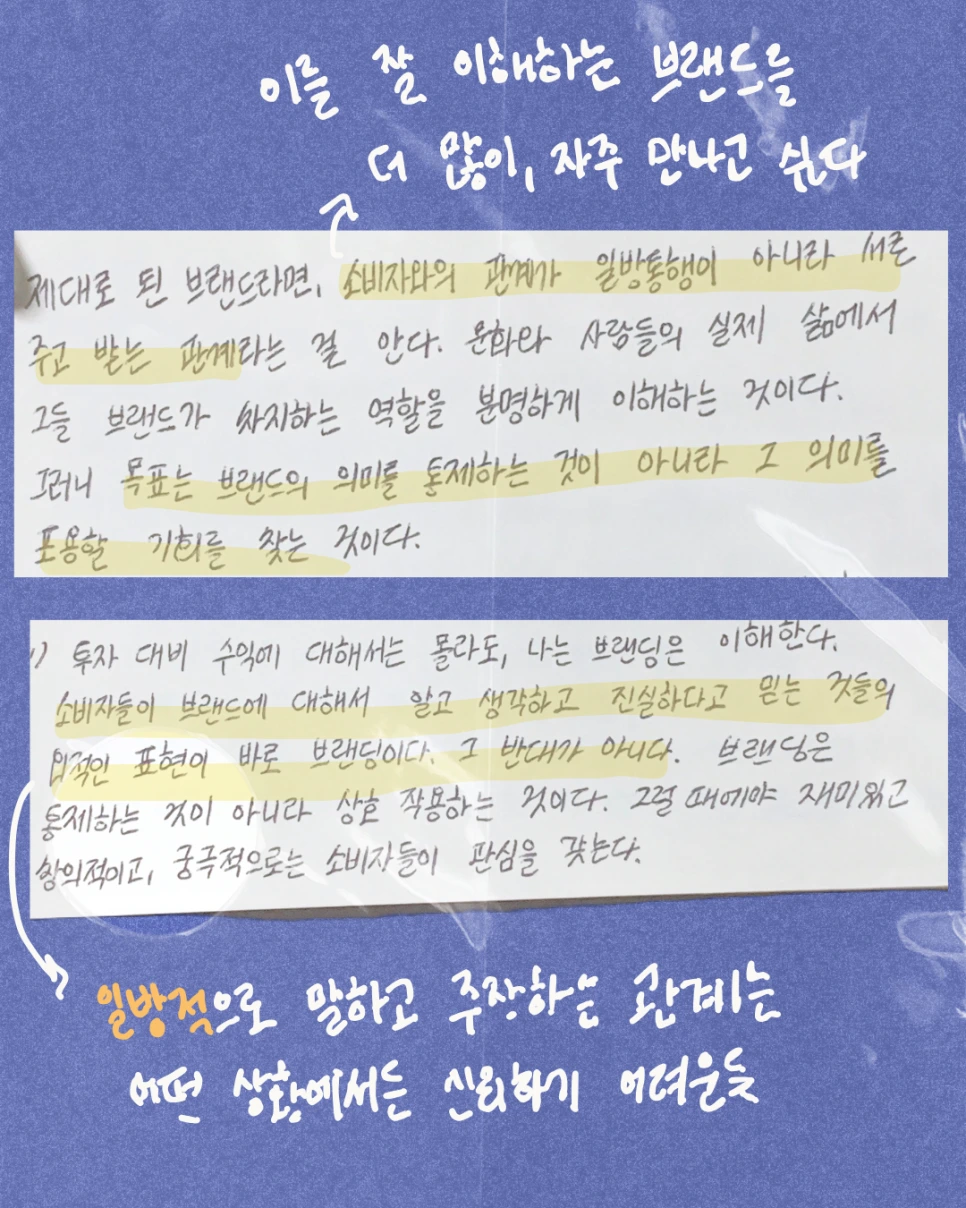 이를 잘 이해하는 브랜드를
더 많이, 자주 만나고 싶다
제대로 된 브랜드라면, 소비자와의 관계가 일방통행이 아니라 서로
주고 받는 관계라는 걸 안다. 문화와 사람들의 실제 삶에서
그들 브랜드가 차지하는 역할을 분명하게 이해하는 것이다.
그러니 목표는 브랜드의 의미를 통제하는 것이 아니라 그 의미를
포용할 기회를 찾는 것이다.
투자 대비 수익에 대해서는 몰라도, 나는 브랜딩은 이해한다.
소비자들이 브랜드에 대해서 알고 생각하고 진실하다고 믿는 것들의
표현이 바로 브랜딩이다. 그 반대가 아니다. 브랜딩은
통제하는 것이 아니라 상호 작용하는 것이다. 그럴 때에야 재미있고
창의적이고, 궁극적으로는 소비자들이 관심을 갖는다.
일방적으로 말하고 주장하는 관계는
어떤 상황에서든 신뢰하기 어려운듯